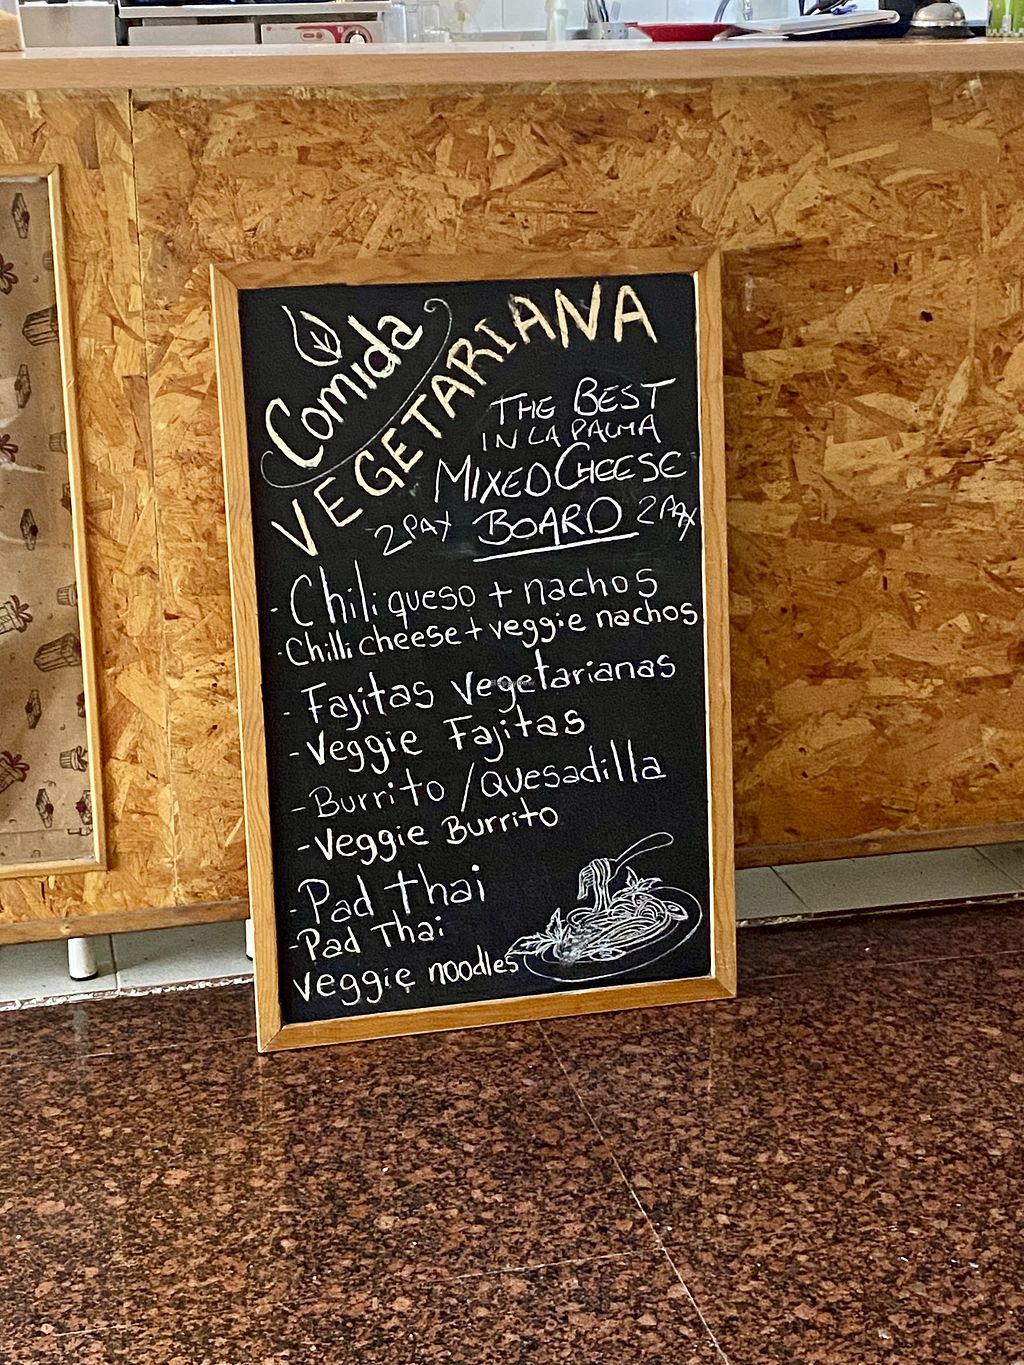 Comida
VEGETARIANA
THE BEST
IN LA PALMA
MIXED CHEESE
2 PAX BOARD 2 PAX
- Chili queso + nachos
- Chilli cheese + veggie nachos
- Fajitas vegetarianas
- Veggie Fajitas
- Burrito / Quesadilla
- Veggie Burrito
- Pad thai
- Pad Thai
veggie noodles